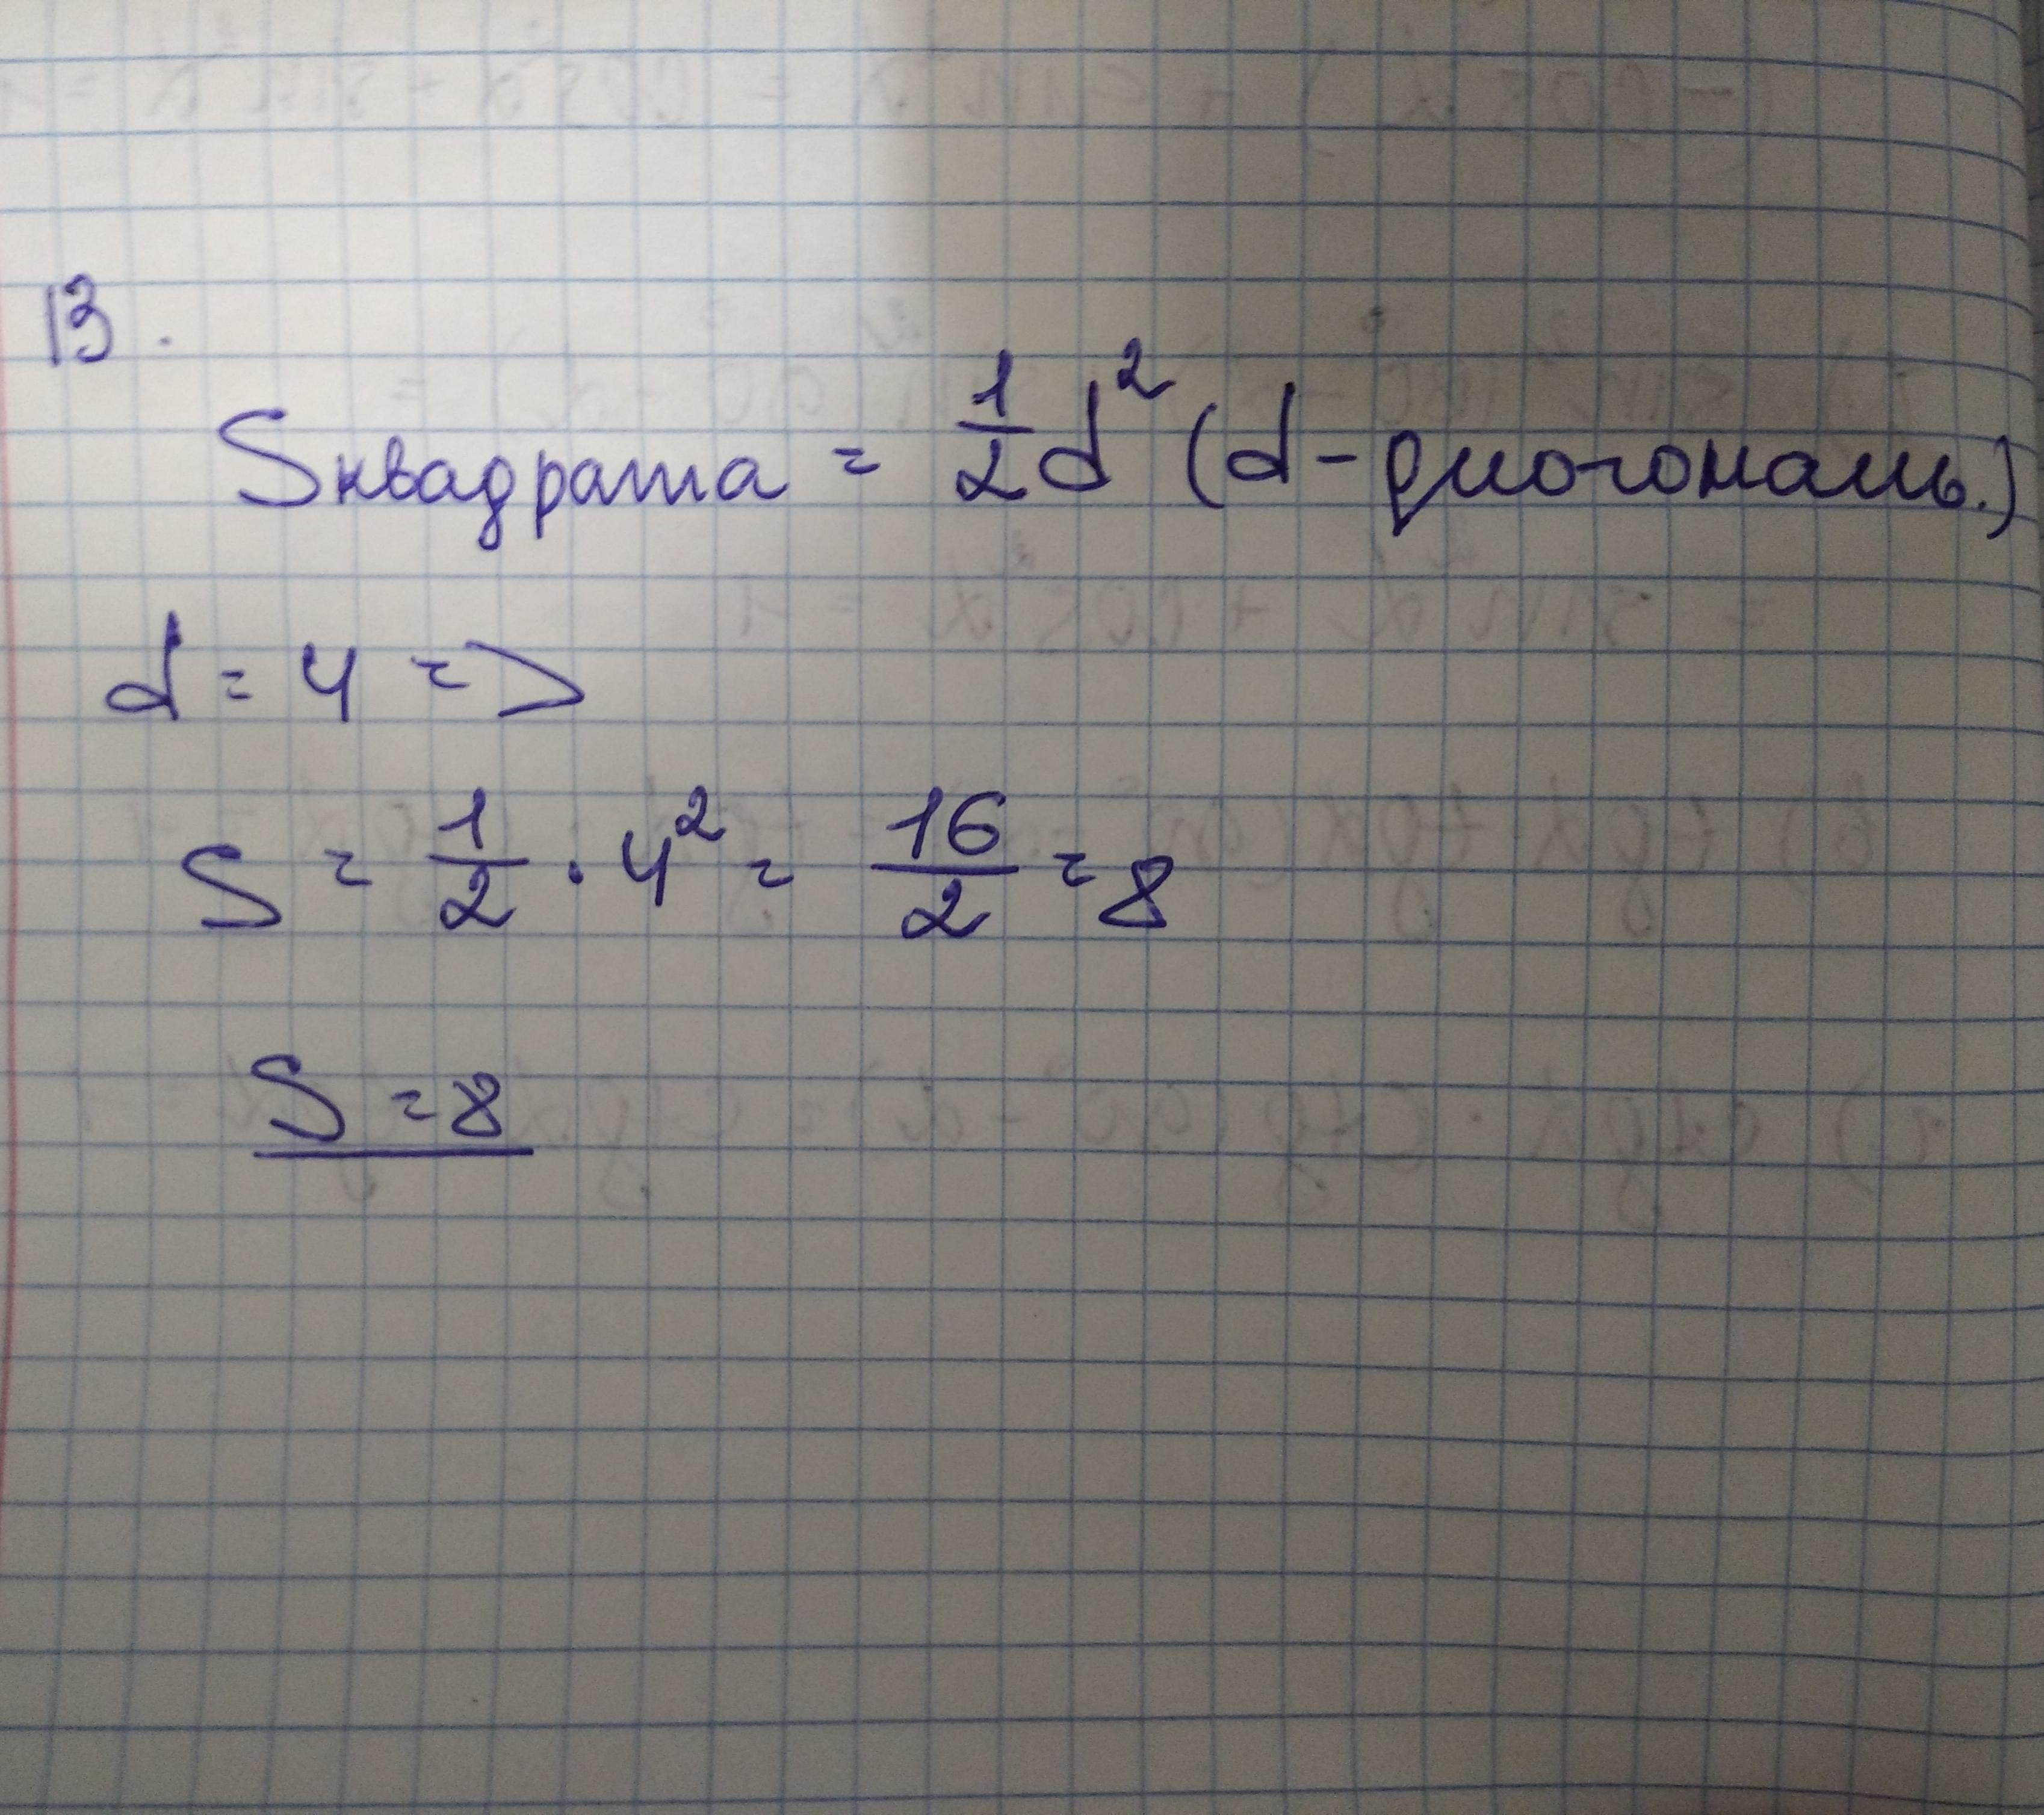 13.
Sквадрата = 1/2 d² (d - диогональ.)
d = 4 =>
S = 1/2 · 4² = 16/2 = 8
S = 8